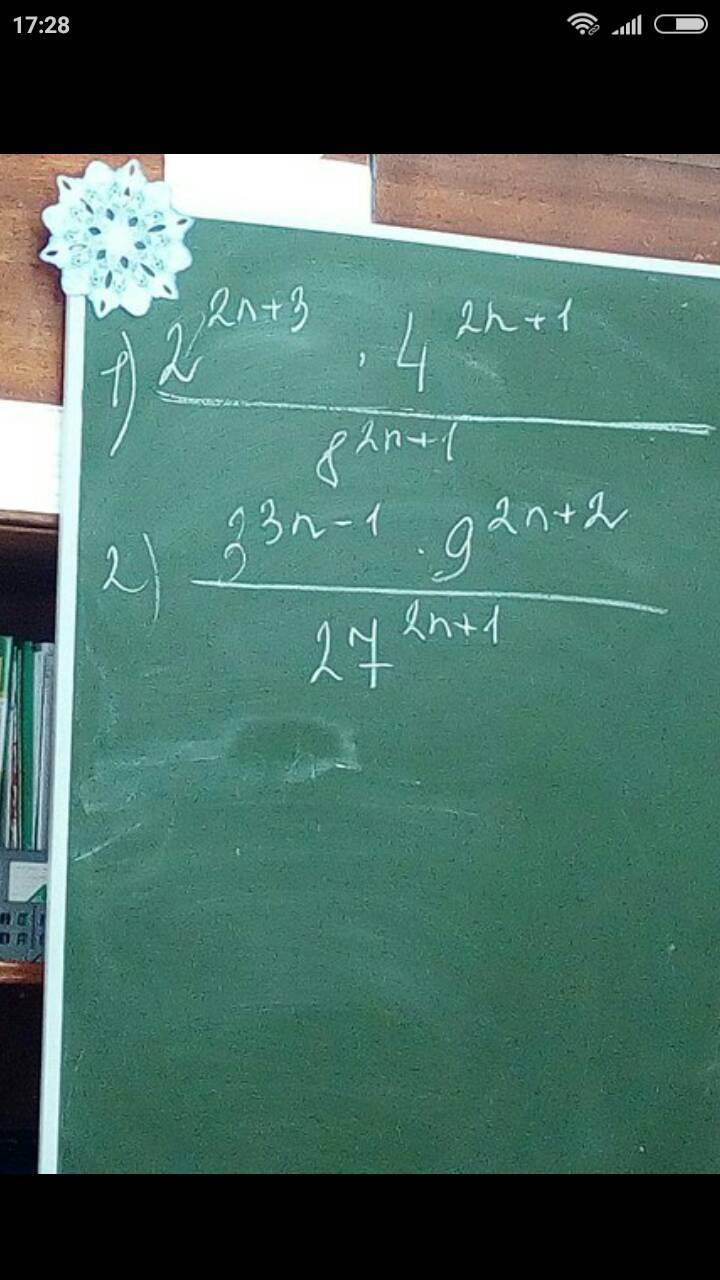 17:28
1) 2^{2n+3} · 4^{2n+1}
8^{2n+1}
2) 3^{3n-1} · 9^{2n+2}
27^{2n+1}